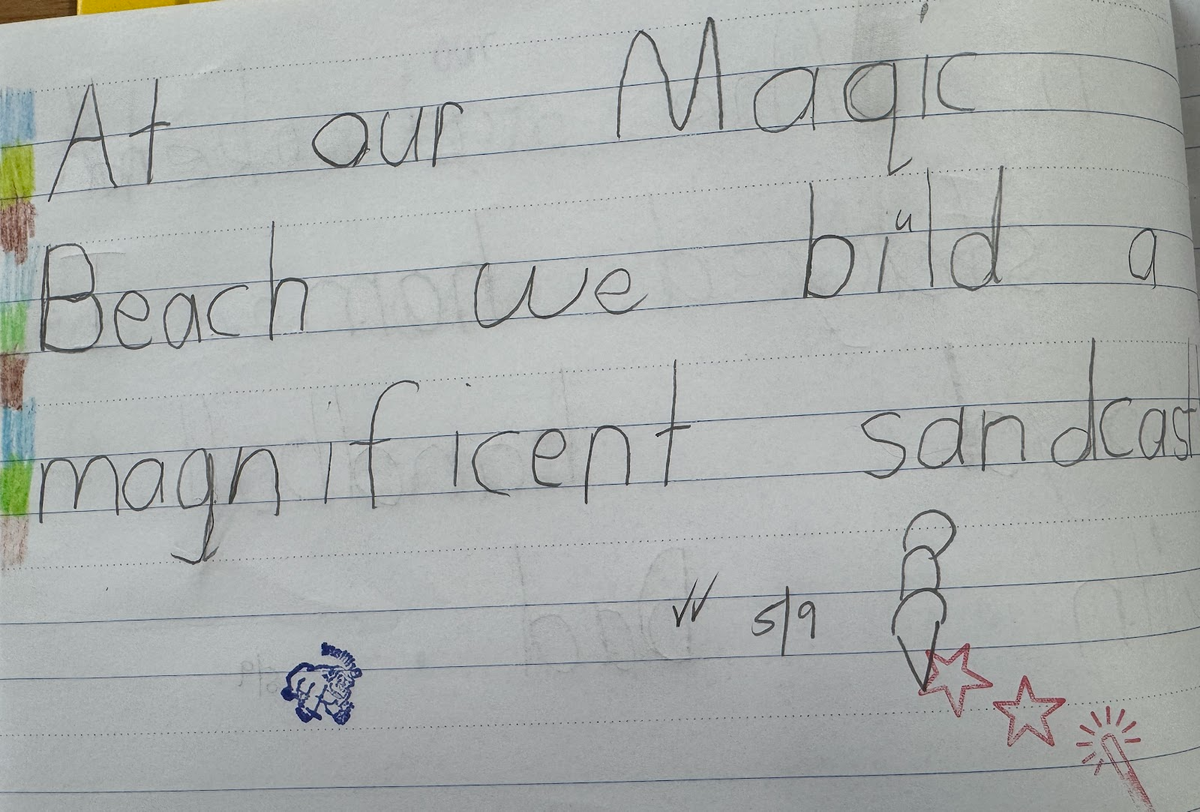 At our Magic
Beach we build a
magnificent sandcastl
5/9